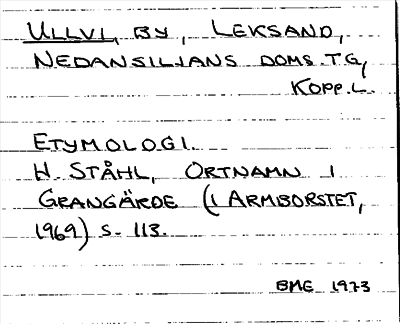 ULLVI, BY, LEKSAND,
NEDANSILJANS DOMS. TG,
KOPP. L.
ETYMOLOGI.
H. STÅHL, ORTNAMN I
GRANGÄRDE (I ARMBORSTET,
1969) S. 113.
BME 1973